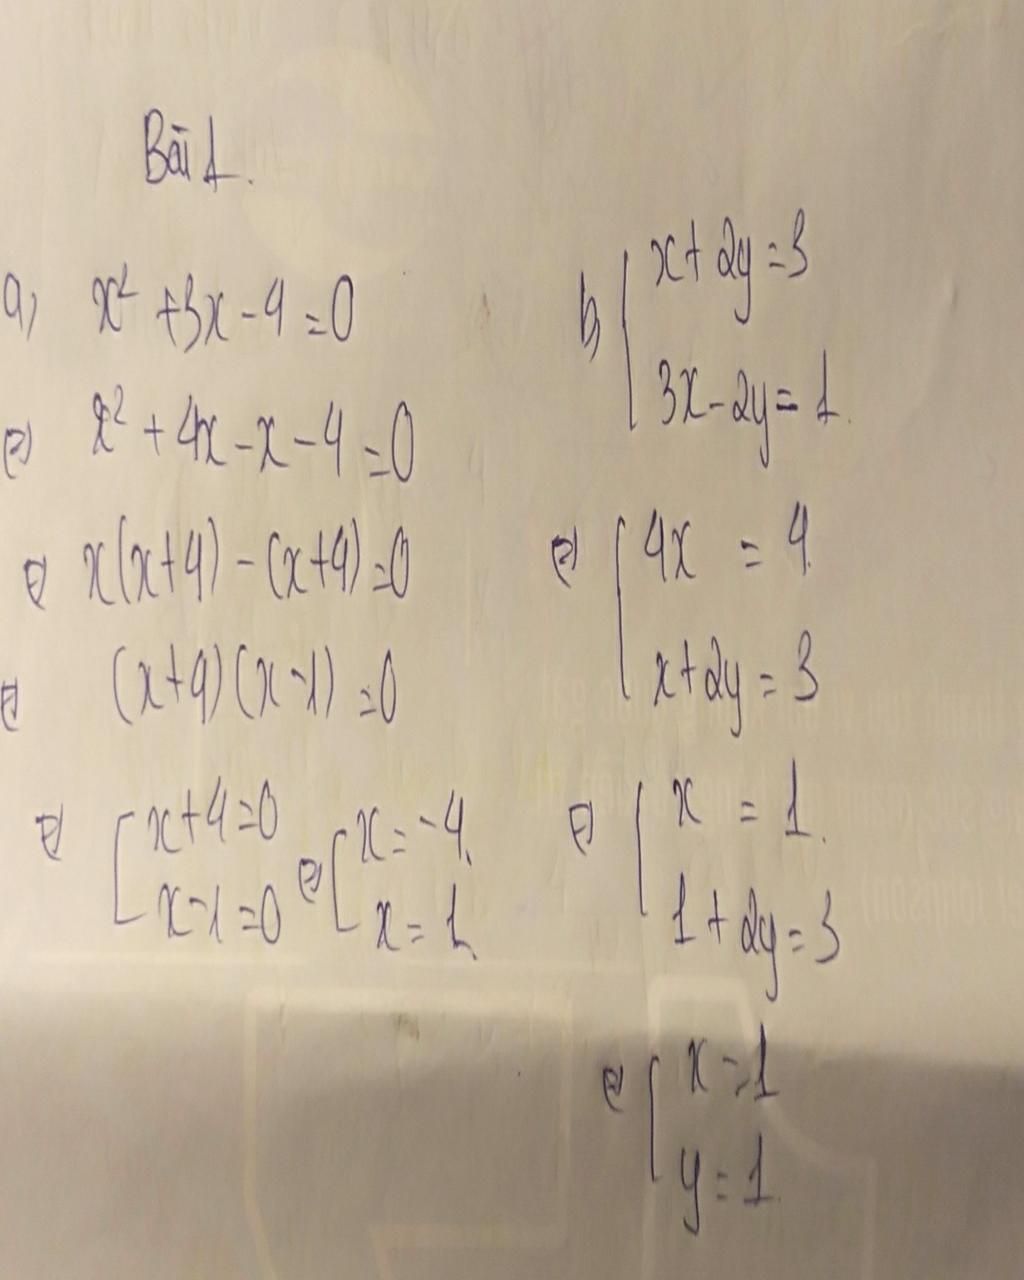 Bài 1.
a) x² + 3x - 4 = 0
⇔ x² + 4x - x - 4 = 0
⇔ x(x+4) - (x+4) = 0
⇔ (x+4)(x-1) = 0
⇔ [ x+4=0
x-1=0
⇔ [ x = -4.
x = 1
b) { x + 2y = 3
3x - 2y = 1.
⇔ { 4x = 4.
x + 2y = 3
⇔ { x = 1.
1 + 2y = 3
⇔ { x = 1
y = 1.